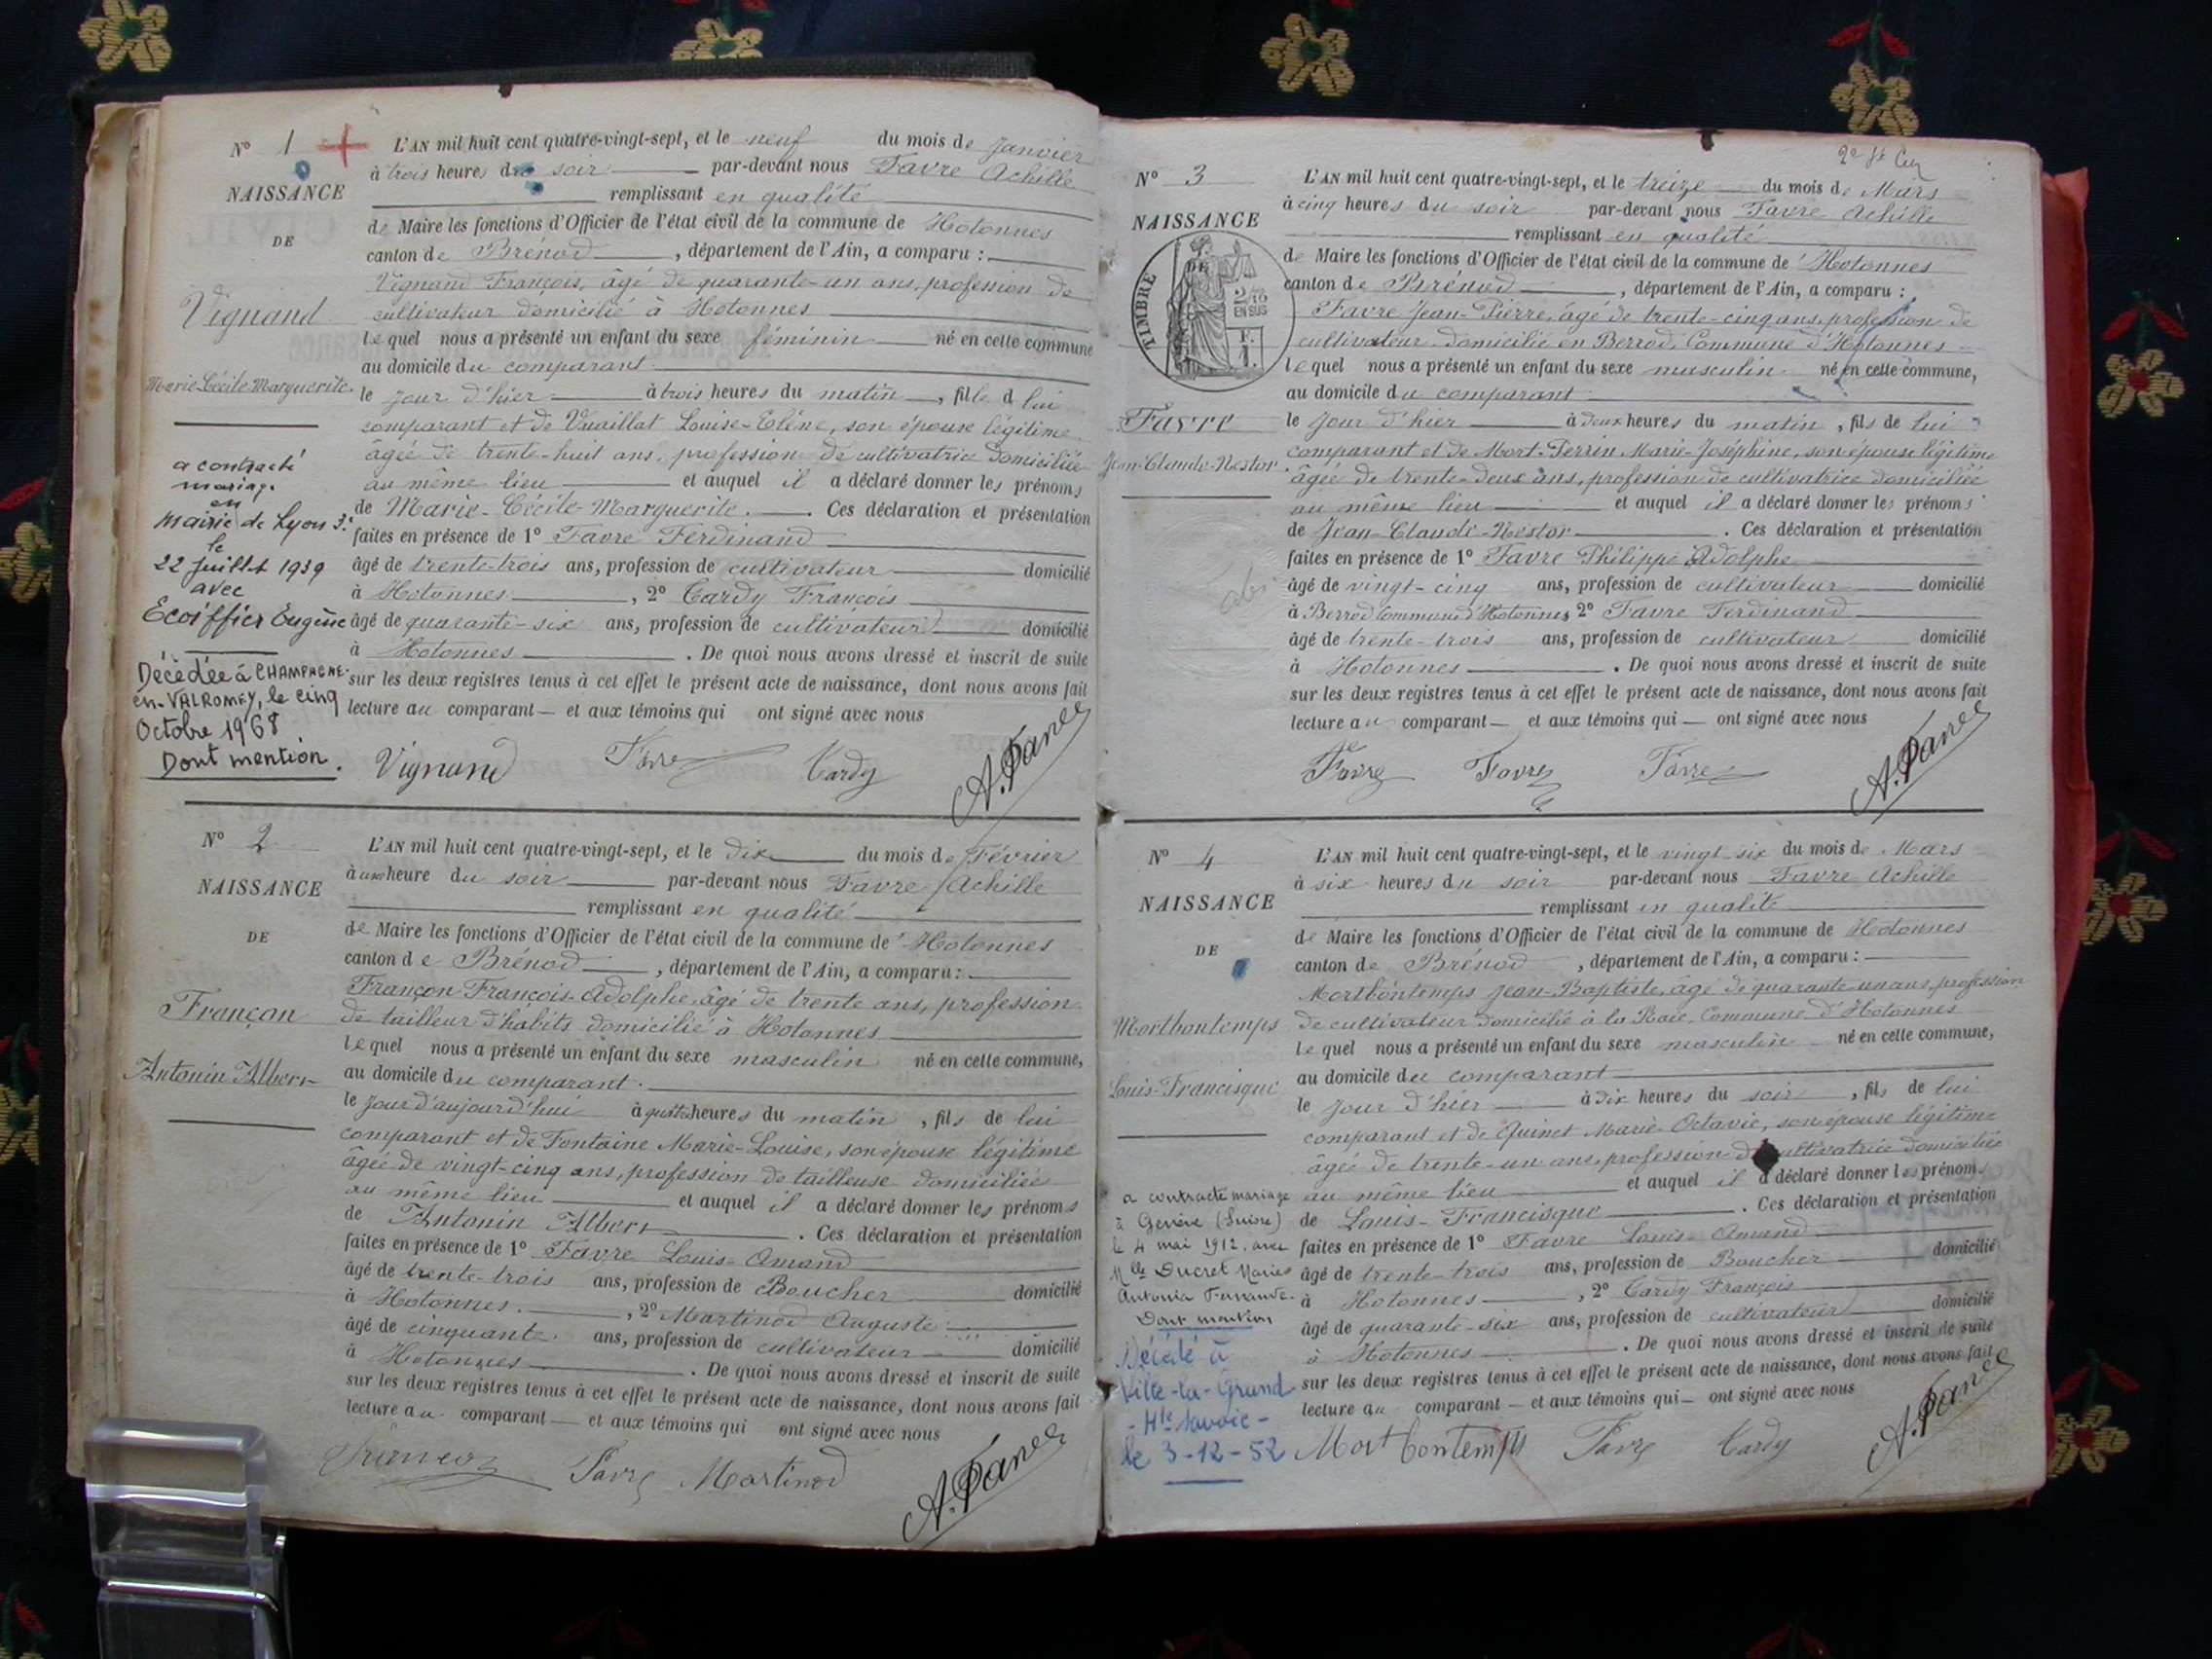 N° 1
NAISSANCE
DE
Vignand
Marie-Cécile Marguerite.
a contracté
mariage
en
Mairie de Lyon 3e
le
22 Juillet 1939
avec
Ecoiffier Eugène
Décédée à CHAMPAGNE-
en-VALROMEY, le cinq
Octobre 1968
Dont mention.
L'AN mil huit cent quatre-vingt-sept, et le neuf du mois de Janvier
à trois heures du soir par-devant nous Favre Achille
remplissant en qualité
de Maire les fonctions d'Officier de l'état civil de la commune de Hotonnes
canton de Brénod, département de l'Ain, a comparu :
Vignand François, âgé de quarante-un ans, profession de
cultivateur domicilié à Hotonnes
lequel nous a présenté un enfant du sexe féminin né en cette commune
au domicile du comparant
le jour d'hier à trois heures du matin, fille d lui
comparant et de Vuaillat Louise-Elène, son épouse légitime
âgée de trente-huit ans, profession de cultivatrice domiciliée
au même lieu et auquel il a déclaré donner les prénoms
de Marie-Cécile Marguerite. Ces déclaration et présentation
faites en présence de 1° Favre Ferdinand
âgé de trente-trois ans, profession de cultivateur domicilié
à Hotonnes, 2° Cardy François
âgé de quarante-six ans, profession de cultivateur domicilié
à Hotonnes. De quoi nous avons dressé et inscrit de suite
sur les deux registres tenus à cet effet le présent acte de naissance, dont nous avons fait
lecture au comparant et aux témoins qui ont signé avec nous
Vignand Favre Cardy A. Favre
N° 2
NAISSANCE
DE
Françon
Antonin Albert
L'AN mil huit cent quatre-vingt-sept, et le dix du mois de Février
à une heure du soir par-devant nous Favre Achille
remplissant en qualité
de Maire les fonctions d'Officier de l'état civil de la commune de Hotonnes
canton de Brénod, département de l'Ain, a comparu :
Françon François-Adolphe, âgé de trente ans, profession
de tailleur d'habits domicilié à Hotonnes
lequel nous a présenté un enfant du sexe masculin né en cette commune,
au domicile du comparant.
le jour d'aujourd'hui à quatre heures du matin, fils de lui
comparant et de Fontaine Marie-Louise, son épouse légitime
âgée de vingt-cinq ans, profession de tailleuse domiciliée
au même lieu et auquel il a déclaré donner les prénoms
de Antonin Albert. Ces déclaration et présentation
faites en présence de 1° Favre Louis-Amand
âgé de trente-trois ans, profession de Boucher domicilié
à Hotonnes., 2° Martinod Auguste
âgé de cinquante. ans, profession de cultivateur domicilié
à Hotonnes. De quoi nous avons dressé et inscrit de suite
sur les deux registres tenus à cet effet le présent acte de naissance, dont nous avons fait
lecture au comparant et aux témoins qui ont signé avec nous
Françon Favre Martinod A. Favre
N° 3
NAISSANCE
DE
TIMBRE
2/10
EN SUS
F.
1.
Favre
Jean-Claude-Nestor
L'AN mil huit cent quatre-vingt-sept, et le treize du mois de Mars
à cinq heures du soir par-devant nous Favre Achille
remplissant en qualité
de Maire les fonctions d'Officier de l'état civil de la commune de Hotonnes
canton de Brénod, département de l'Ain, a comparu :
Favre Jean-Pierre, âgé de trente-cinq ans, profession de
cultivateur domicilié en Berrod, Commune d'Hotonnes
lequel nous a présenté un enfant du sexe masculin né en cette commune,
au domicile du comparant
le jour d'hier à deux heures du matin, fils de lui
comparant et de Mort-Perrin Marie-Joséphine, son épouse légitime
âgée de trente-deux ans, profession de cultivatrice domiciliée
au même lieu et auquel il a déclaré donner les prénoms
de Jean-Claude-Nestor. Ces déclaration et présentation
faites en présence de 1° Favre Philippe Adolphe
âgé de vingt-cinq ans, profession de cultivateur domicilié
à Berrod Commune d'Hotonnes 2° Favre Ferdinand
âgé de trente-trois ans, profession de cultivateur domicilié
à Hotonnes. De quoi nous avons dressé et inscrit de suite
sur les deux registres tenus à cet effet le présent acte de naissance, dont nous avons fait
lecture au comparant et aux témoins qui ont signé avec nous
Favre Favre Favre A. Favre
N° 4
NAISSANCE
DE
Mortbontemps
Louis-Francisque
a contracté mariage
à Genève (Suisse)
le 4 mai 1912, avec
Mlle Ducret Marie
Antonia Fernande.
Dont mention
Décédé à
Ville-la-Grand
- Hte Savoie -
le 3-12-52
L'AN mil huit cent quatre-vingt-sept, et le vingt-six du mois de Mars
à six heures du soir par-devant nous Favre Achille
remplissant en qualité
de Maire les fonctions d'Officier de l'état civil de la commune de Hotonnes
canton de Brénod, département de l'Ain, a comparu :
Mortbontemps Jean-Baptiste, âgé de quarante-un ans, profession
de cultivateur domicilié à la Raie, Commune d'Hotonnes
lequel nous a présenté un enfant du sexe masculin né en cette commune,
au domicile du comparant
le jour d'hier à dix heures du soir, fils de lui
comparant et de Quinet Marie-Octavie, son épouse légitime
âgée de trente-un ans, profession de cultivatrice domiciliée
au même lieu et auquel il a déclaré donner les prénoms
de Louis-Francisque. Ces déclaration et présentation
faites en présence de 1° Favre Louis-Amand
âgé de trente-trois ans, profession de Boucher domicilié
à Hotonnes, 2° Cardy François
âgé de quarante-six ans, profession de cultivateur domicilié
à Hotonnes. De quoi nous avons dressé et inscrit de suite
sur les deux registres tenus à cet effet le présent acte de naissance, dont nous avons fait
lecture au comparant et aux témoins qui ont signé avec nous
Mortbontemps Favre Cardy A. Favre